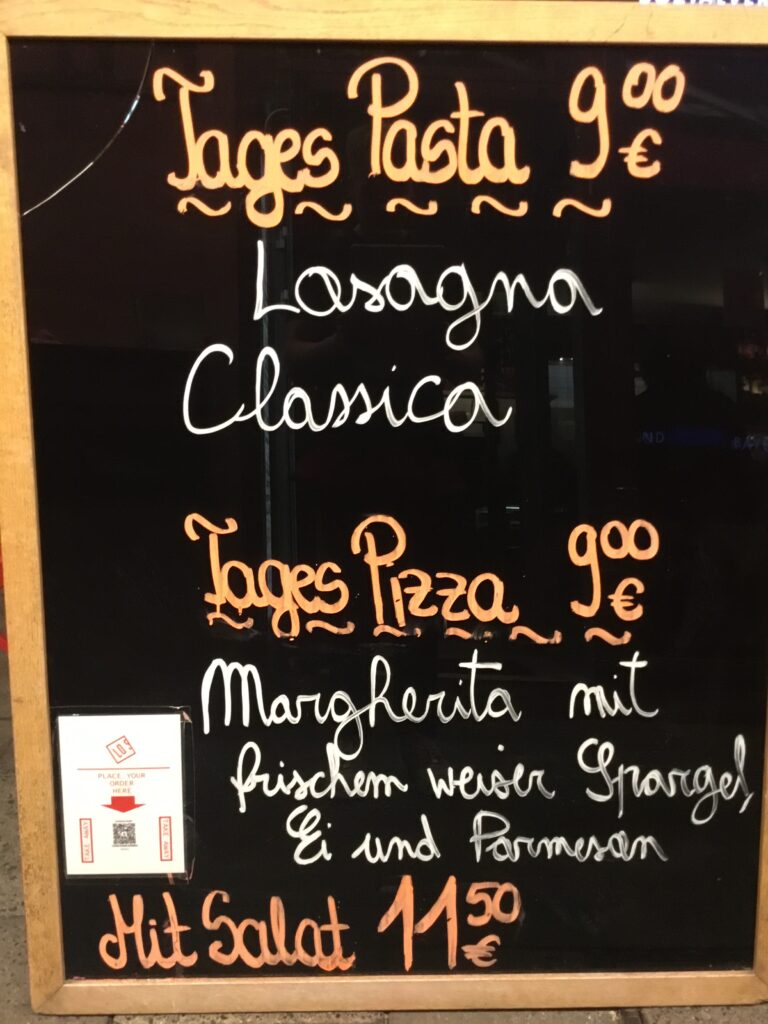 Tages Pasta 9⁰⁰ €
Lasagna
Classica
Tages Pizza 9⁰⁰ €
Margherita mit
frischem weiser Spargel,
Ei und Parmesan
PLACE YOUR
ORDER
HERE
TAKE AWAY
TAKE AWAY
Mit Salat 11⁵⁰ €